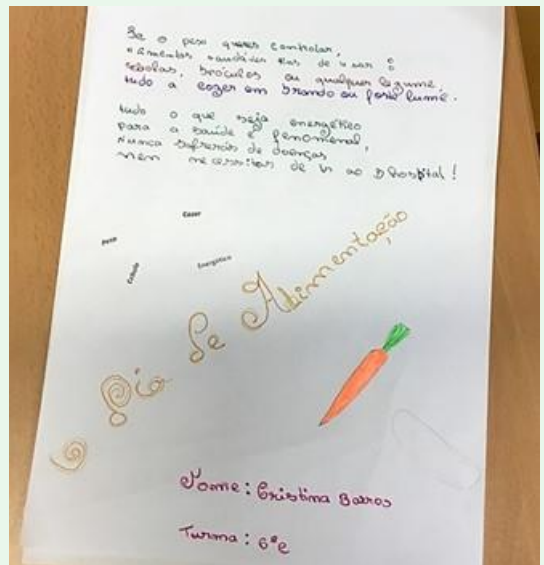 Se o peso queres controlar,
alimentos saudáveis tens de usar:
cebolas, brócolos ou qualquer legume,
tudo a cozer em brando ou forte lume.
tudo o que seja energético
para a saúde é fenomenal,
Nunca sofrerás de doenças
nem necessitas de ir ao hospital!
Cozer
Peso
Cebola
Energético
Dia da Alimentação
Nome: Cristina Barros
Turma: 6ºe